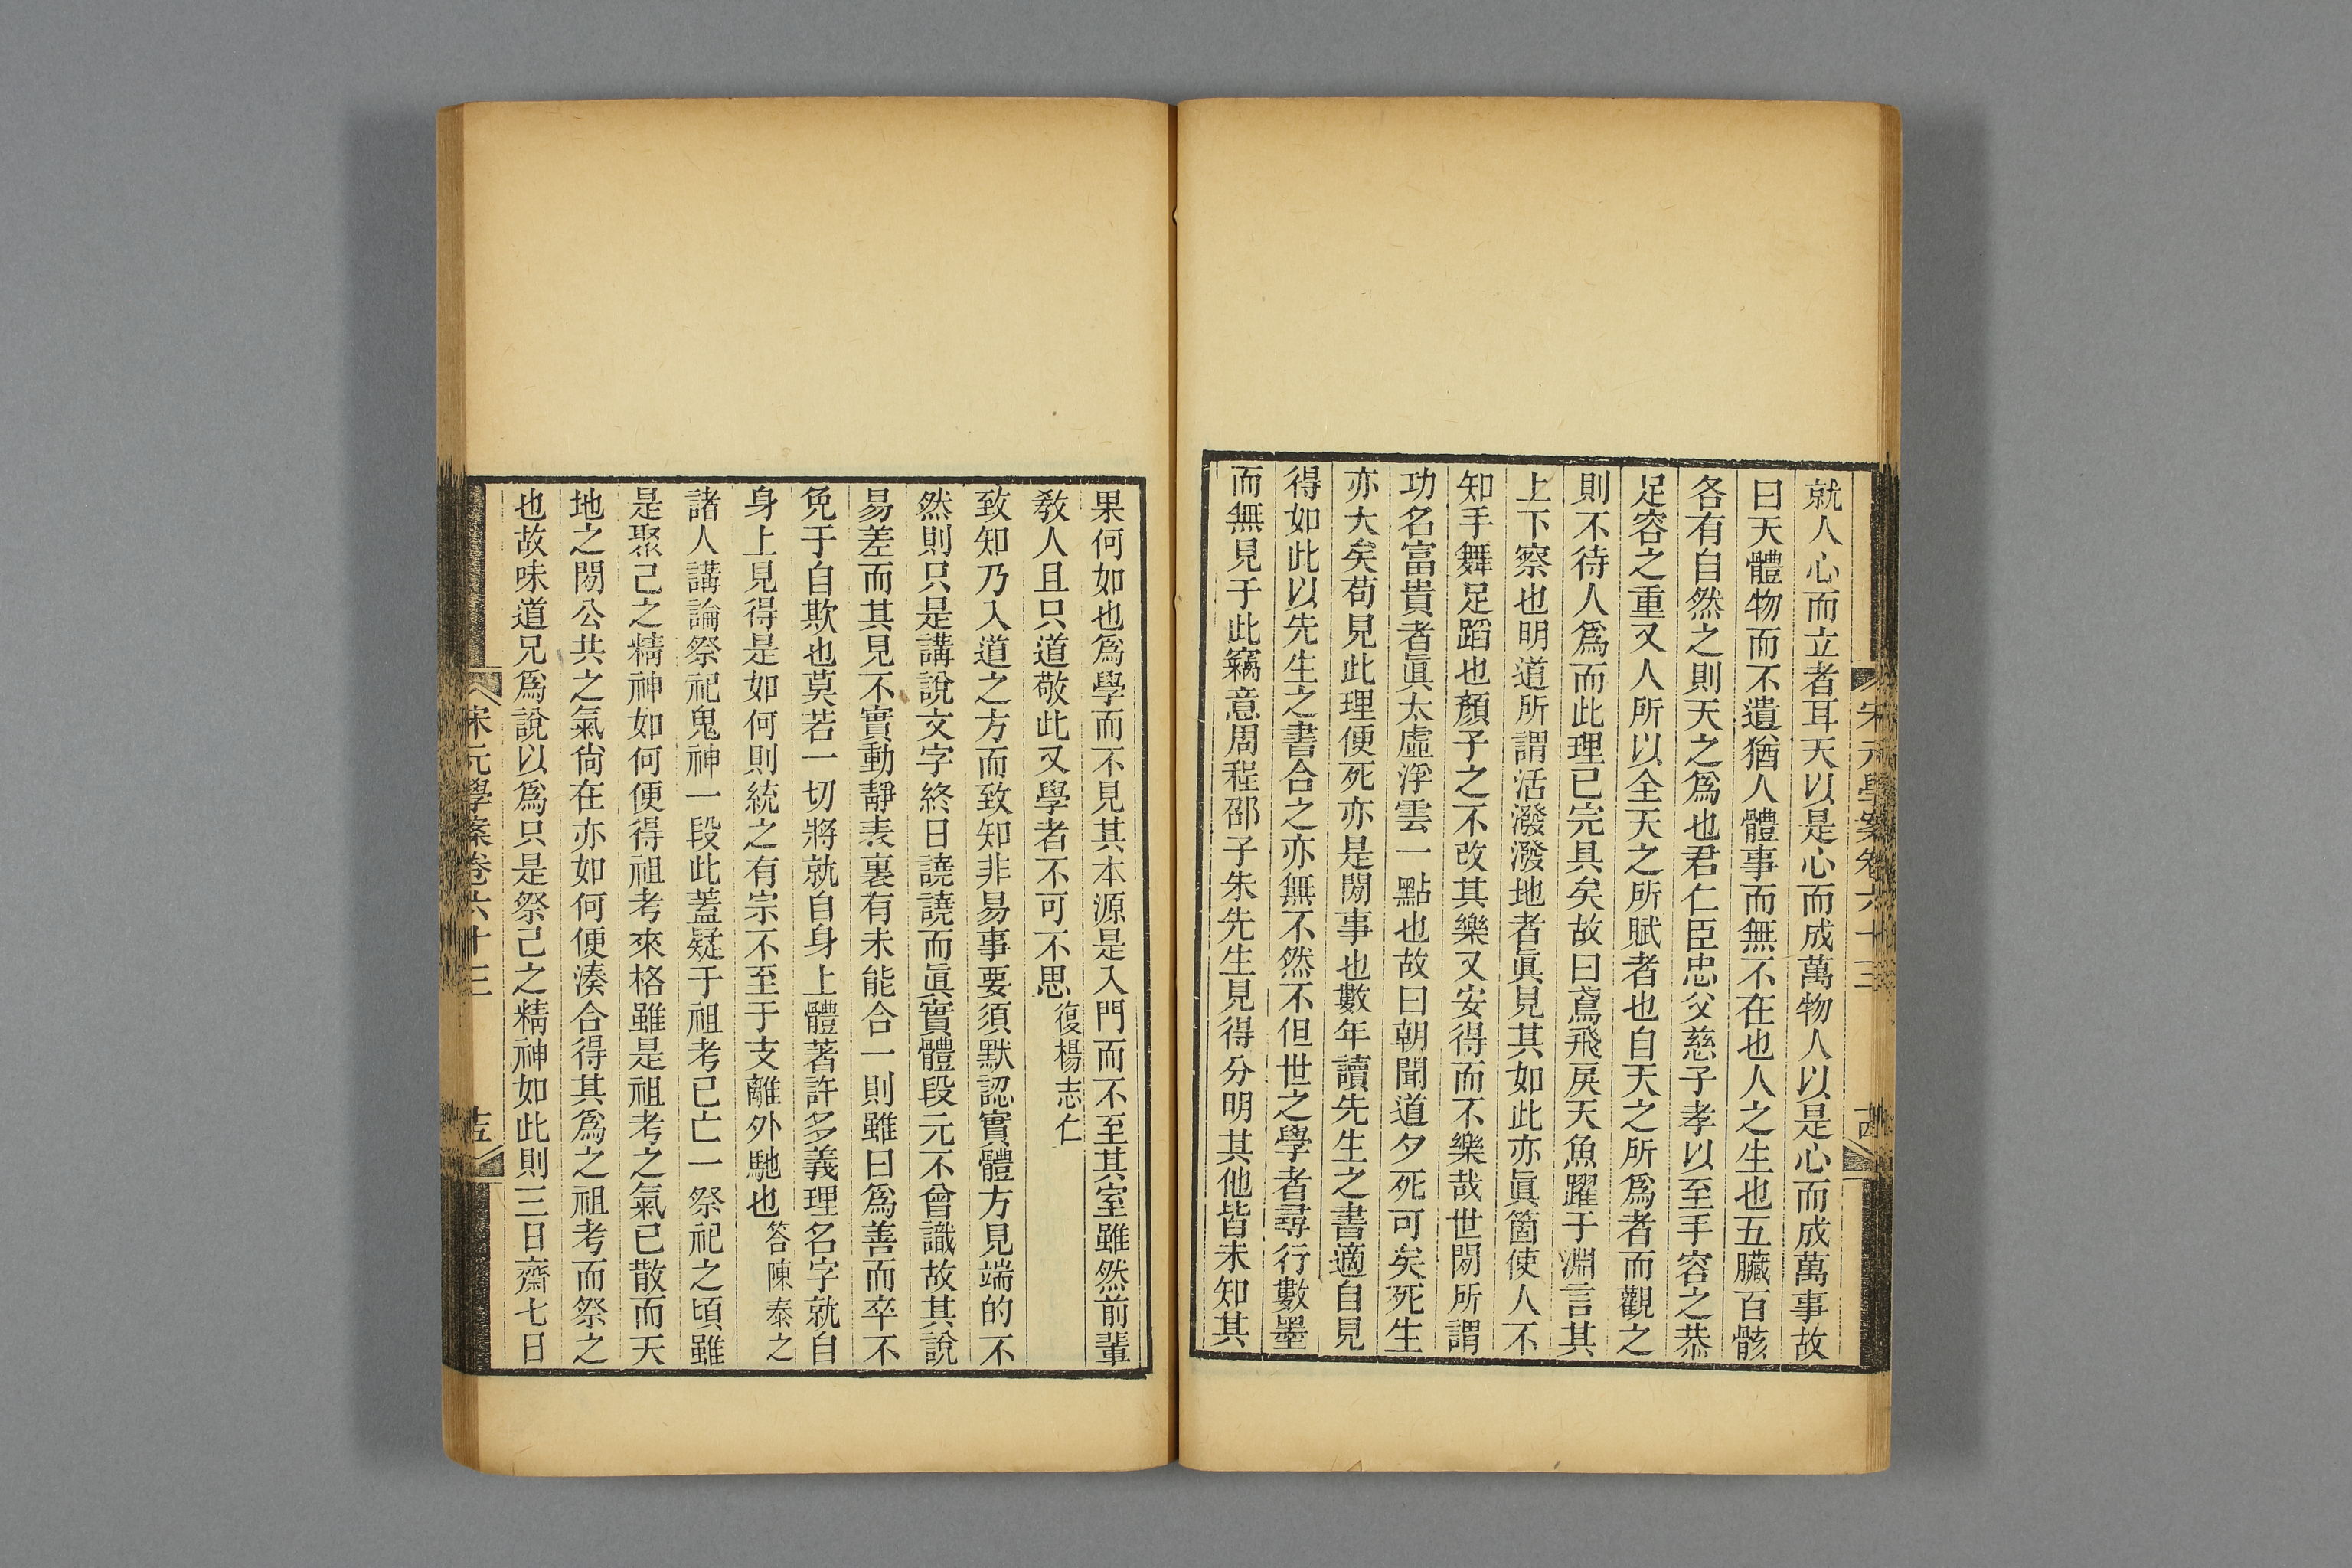 宋元學案卷六十三
十四
就人心而立者耳天以是心而成萬物人以是心而成萬事故
曰天體物而不遺猶人體事而無不在也人之生也五臟百骸
各有自然之則天之爲也君仁臣忠父慈子孝以至手容之恭
足容之重又人所以全天之所賦者也自天之所爲者而觀之
則不待人爲而此理已完具矣故曰鳶飛戾天魚躍于淵言其
上下察也明道所謂活潑潑地者眞見其如此亦眞箇使人不
知手舞足蹈也顏子之不改其樂又安得而不樂哉世閒所謂
功名富貴者眞太虛浮雲一點也故曰朝聞道夕死可矣死生
亦大矣苟見此理便死亦是閒事也數年讀先生之書適自見
得如此以先生之書合之亦無不然不但世之學者尋行數墨
而無見于此竊意周程邵子朱先生見得分明其他皆未知其
果何如也爲學而不見其本源是入門而不至其室雖然前輩
敎人且只道敬此又學者不可不思復楊志仁
致知乃入道之方而致知非易事要須默認實體方見端的不
然則只是講說文字終日譊譊而眞實體段元不曾識故其說
易差而其見不實動靜表裏有未能合一則雖曰爲善而卒不
免于自欺也莫若一切將就自身上體著許多義理名字就自
身上見得是如何則統之有宗不至于支離外馳也答陳泰之
諸人講論祭祀鬼神一段此蓋疑于祖考已亡一祭祀之頃雖
是聚己之精神如何便得祖考來格雖是祖考之氣已散而天
地之閒公共之氣尙在亦如何便湊合得其爲之祖考而祭之
也故味道兄爲說以爲只是祭己之精神如此則三日齋七日
宋元學案卷六十三
十五